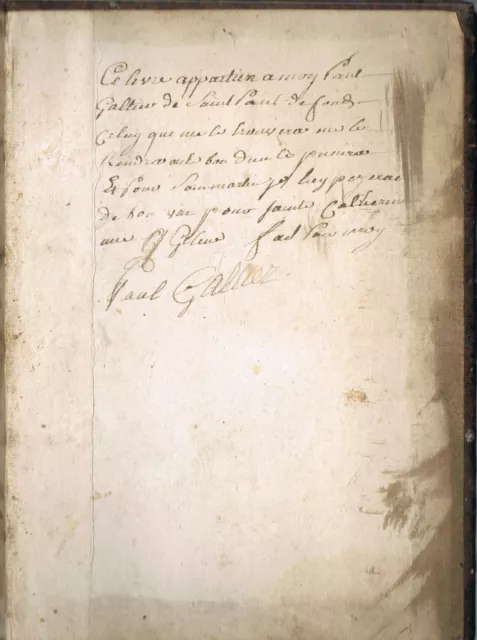 Ce livre appartien a moy Paul
Galtier de Saint Paul de fonds
Celuy que me le trouvera me le
Rendra ou le bon dieu le punira
Et pour Saint martin je luy payerai
de bon vin pour sainte Catherine
une fait par moy
Paul Galtier